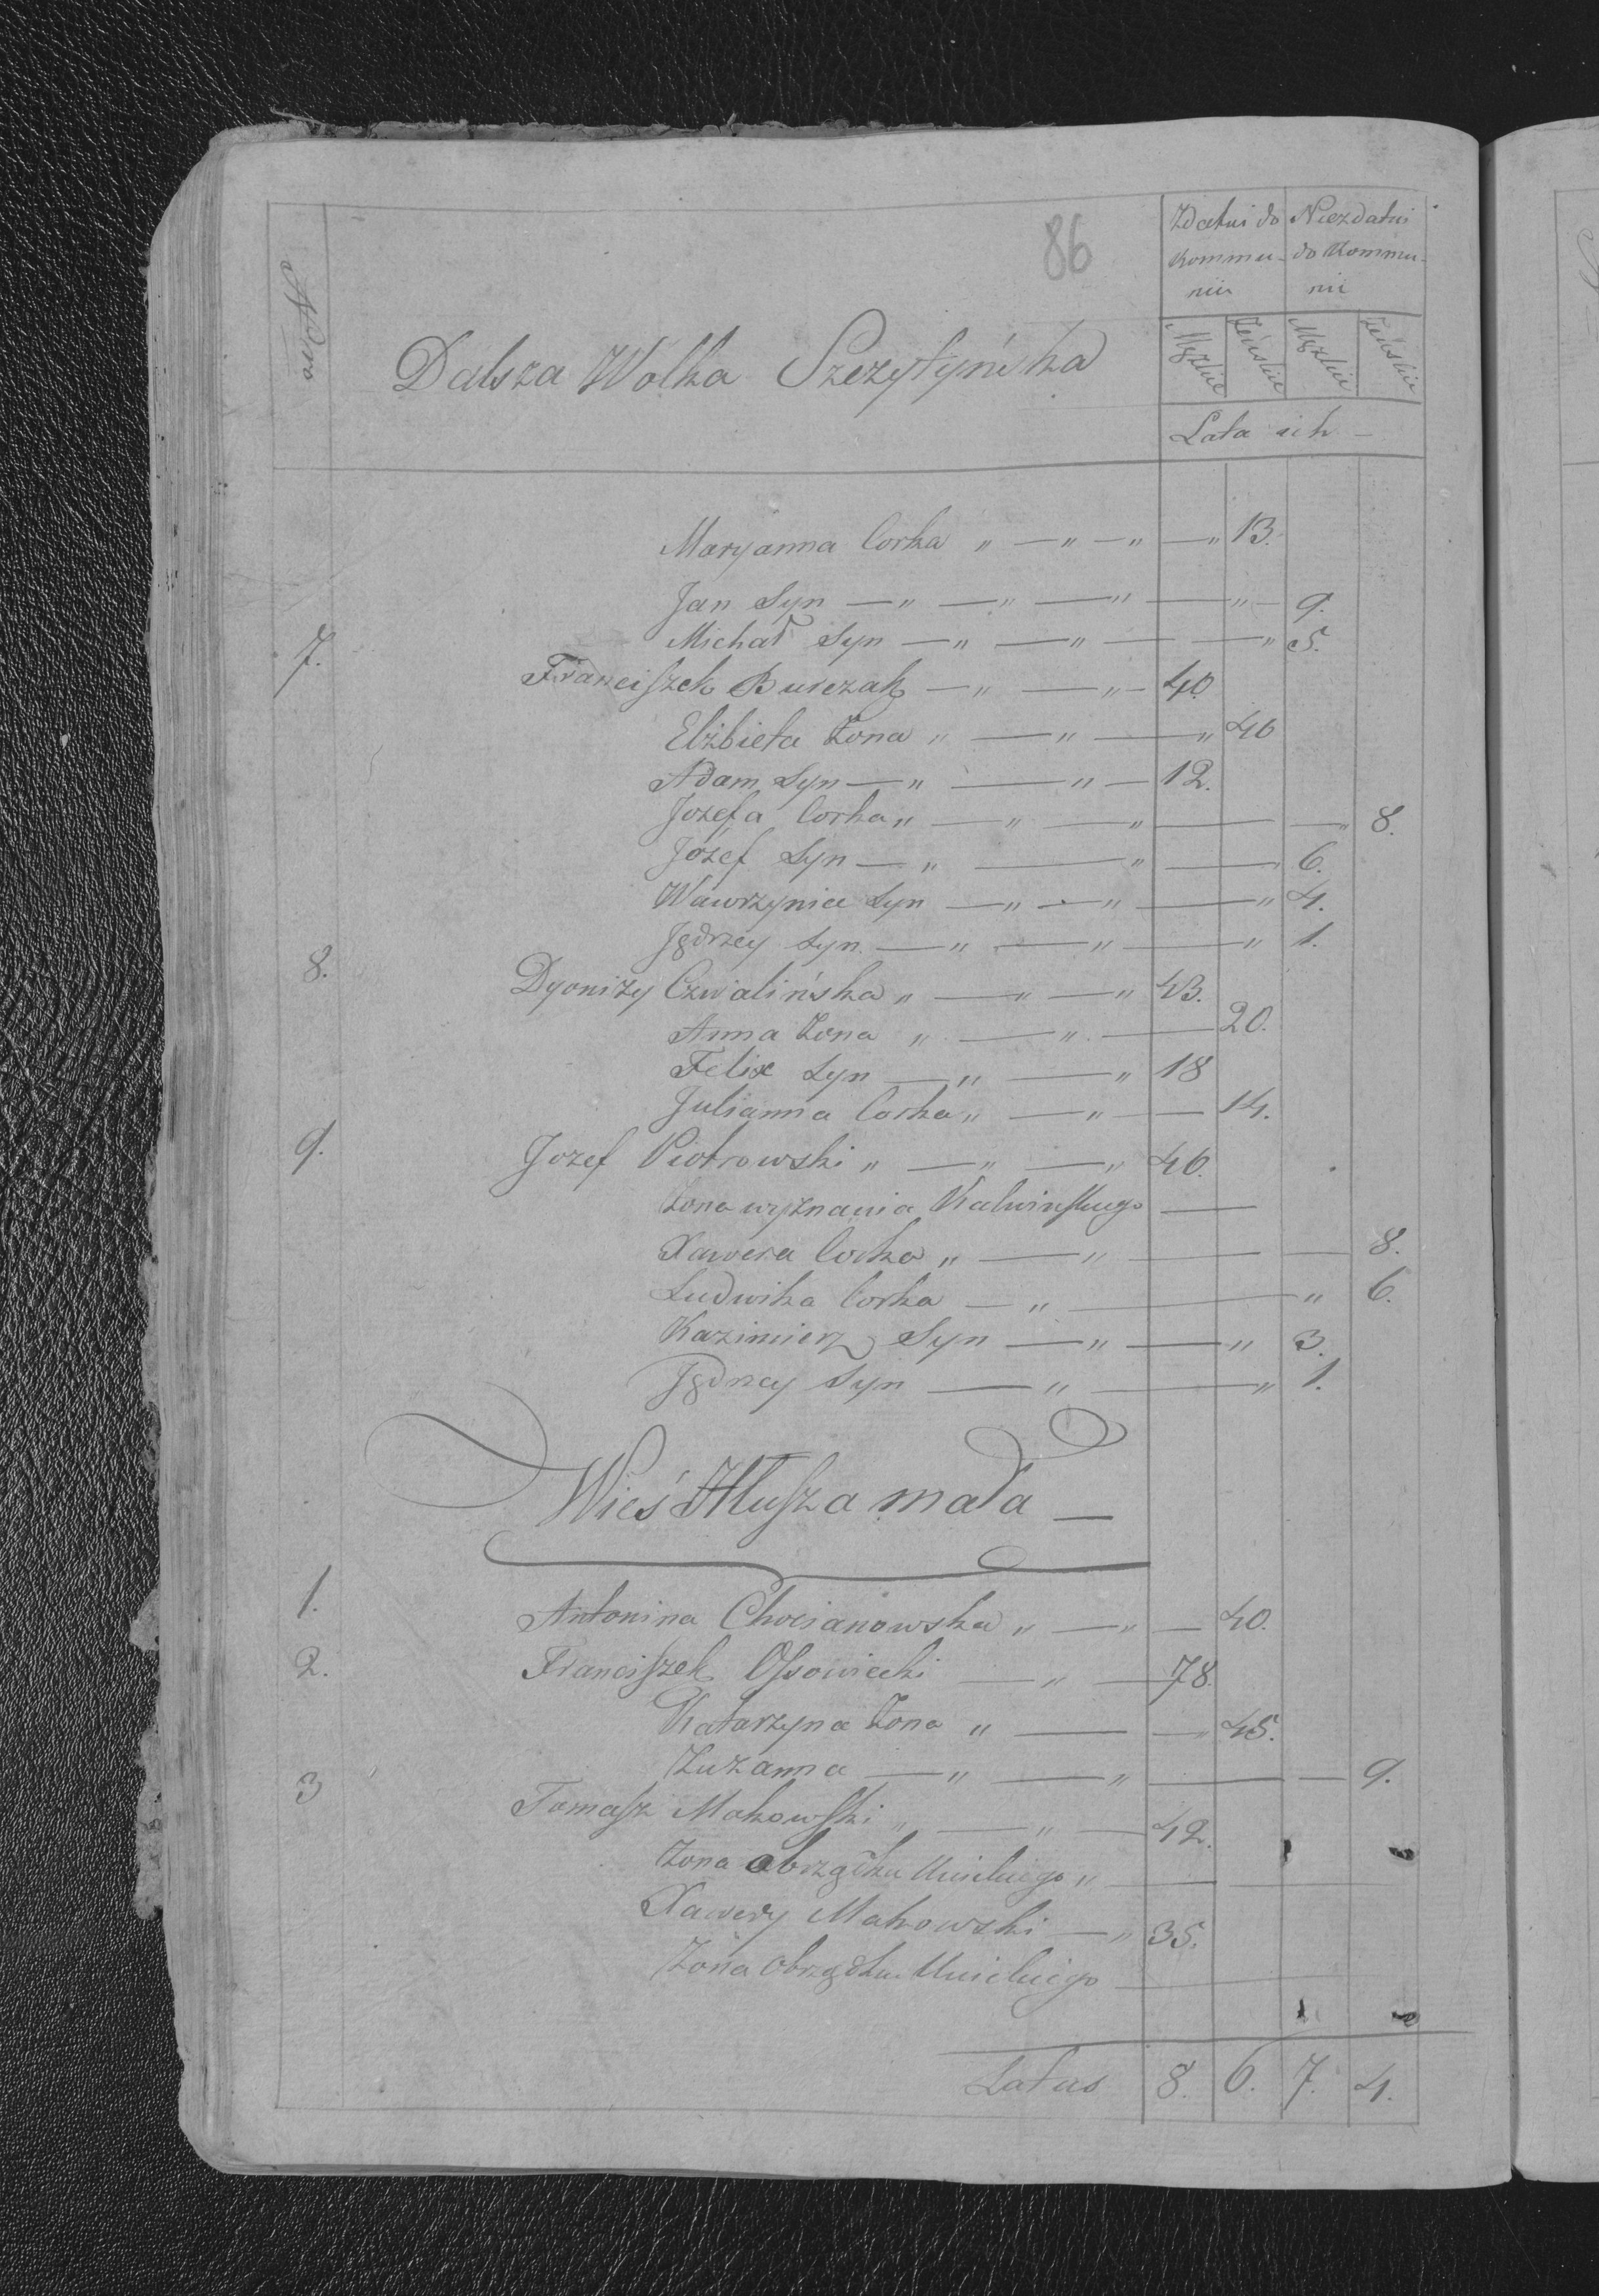 86
Zdatni do Kommunii
Niezdatni do Kommunii
Męzkie Żeńskie Męzkie Żeńskie
Dalsza Wolka Szczytyńska
Lata ich —
Maryanna Corka „ — „ — „ — „ 13.
Jan Syn — „ — „ — „ — „ — 9.
Michał Syn — „ — „ — — „ 5.
7. Franciszek Burczak — „ — „ — 40
Elżbieta Żona „ — „ — „ 46
Adam Syn — „ — „ — 12.
Jozefa Corka „ — „ — „ — — „ 8.
Józef Syn — „ — „ — 6.
Wawrzyniec Syn — „ — „ — „ 4.
Jędrzey Syn. — „ — „ — „ 1.
8. Dyonizy Czwalińska „ — „ — „ 43.
Anna Żona „ — „ — 20.
Felix Syn — „ — „ 18
Julianna Corka „ — „ — 14.
9. Jozef Piotrowski „ — „ — „ 46.
Żona wyznania Kalwinskiego —
Xawera Corka „ — „ — — 8.
Ludwika Corka — „ — „ 6.
Kazimierz Syn — „ — „ 3.
Jędrzey Syn — „ — „ 1.
Wieś Hłusza mała —
1. Antonina Chocianowska „ — „ — 40.
2. Franciszek Ossowiecki — „ — 78.
Katarzyna Żona „ — — „ 45.
Zuzanna — „ — „ — — 9.
3 Tomasz Makowski „ — „ — 42.
Żona obrządku Unickiego „ —
Xawery Makowski — „ 35.
Żona Obrządku Unickiego —
Latus 8. 6. 7. 4.